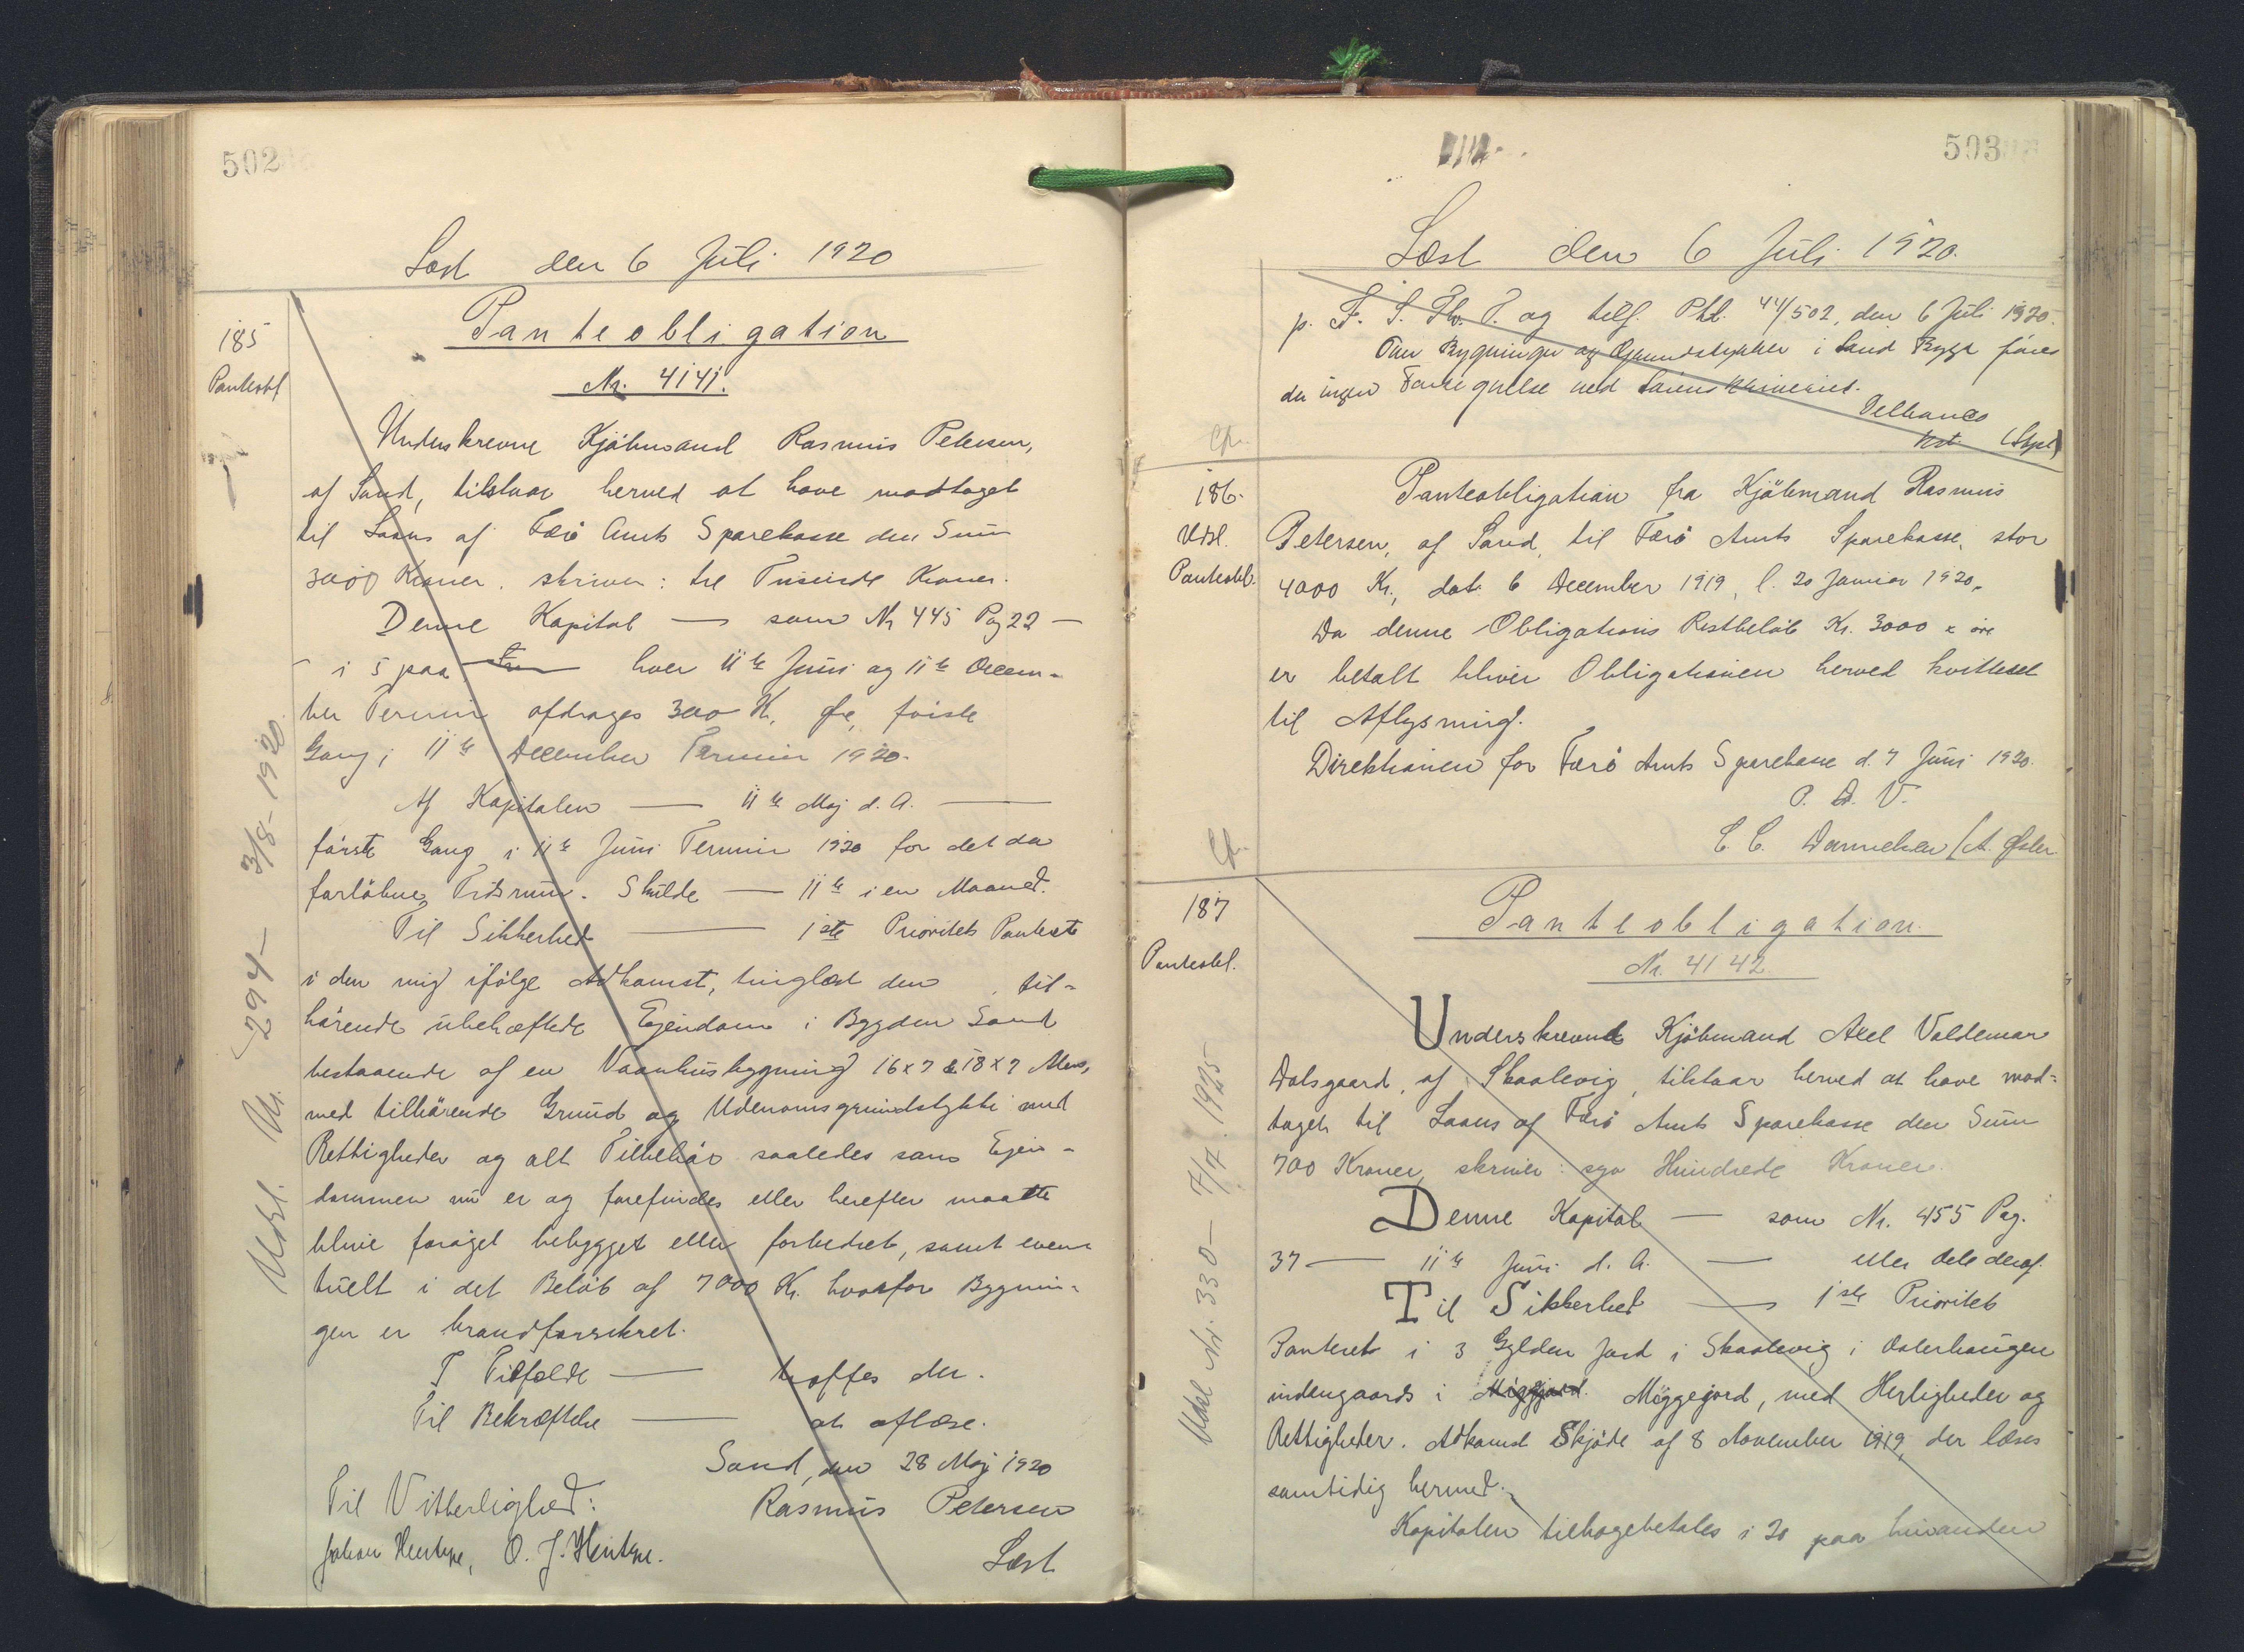 502
Læst den 6 Juli 1920
185
Panteobl
Panteobligation
Nr. 4141.
Underskrevne Kjöbmand Rasmus Petersen,
af Sand, tilstaar herved at have modtaget
til Laans af Færö Amts Sparekasse den Sum
3000 Kroner. skriver: tre Tusinde Kroner.
Denne Kapital — som Nr 445 Pag 22 —
— i 5 paa — hver 11te Juni og 11te Decem-
ber Termin afdrages 300 Kr, förste
Gang i 11te December Termin 1920.
Af Kapitalen — 11te Maj d. A. —
förste Gang i 11te Juni Termin 1920 for det da
forløbne Tidsrum. Skulde — 11te i en Maaned.
Til Sikkerhed — 1ste Prioritets Panteret
i den mig ifölge Adkomst, tinglæst den , til-
hörende ubehæftede Ejendom i Bygden Sand
bestaaende af en Vaanhusbygning 16x7 & 18x7 Meter,
med tilhörende Grund og Udenomsgrundstykke med
Rettigheder og alt Tilbehör saaledes som Ejen-
dommen nu er og forefindes eller herefter maatte
blive foröget bebygget eller forbedret, samt even-
tuelt i det Belöb af 7000 Kr. hvorfor Bygnin-
gen er brandforsikret.
I Tilfælde — træffes der.
Til Bekræftelse — at aflæse.
Sand, den 28 Maj 1920
Til Vitterlighed: Rasmus Petersen
Johan Hentze, O. J. Hentze.
Læst
Udsl. Nr. 294 — 3/8 - 1920
503
Læst den 6 Juli 1920.
p. F. S. Th. P. og tilf. Phl. 44/502, den 6 Juli 1920.
Om Bygninger og Grundstykker i Sand Bygd føres
der ingen Fortegnelse ved Sorenskriveriet.
Cfr.
Kst. (Stpl)
186.
Udsl.
Panteobl.
Panteobligation fra Kjöbmand Rasmus
Petersen, af Sand, til Færö Amts Sparekasse, stor
4000 Kr., dat. 6 December 1919, l. 20 Januar 1920.
Da denne Obligations Restbelöb Kr. 3000 x öre
er betalt bliver Obligationen herved kvitteret
til Aflysning.
Direktionen for Færö Amts Sparekasse d. 7 Juni 1920.
P. D. V.
C. C. Danielsen / A.
Cfr.
187
Panteobl.
Panteobligation.
Nr. 4142
Underskrevne Kjöbmand Axel Valdemar
Dalsgaard, af Skaalevig, tilstaar herved at have mod-
taget til Laans af Færö Amts Sparekasse den Sum
700 Kroner, skriver: syv Hundrede Kroner.
Denne Kapital — som Nr. 455 Pag.
37 — 11te Juni d. A. — eller dele deraf.
Til Sikkerhed — 1ste Prioritets
Panteret i 3 Gylden Jord i Skaalevig i Østerhaugen
indengaards i Miggjard. Möggejord, med Herligheder og
Rettigheder. Adkomst Skjöde af 8 November 1919, der læses
samtidig hermed.
Kapitalen tilbagebetales i 20 paa hinanden
Udsl Nr. 330 — 7/7. 1925